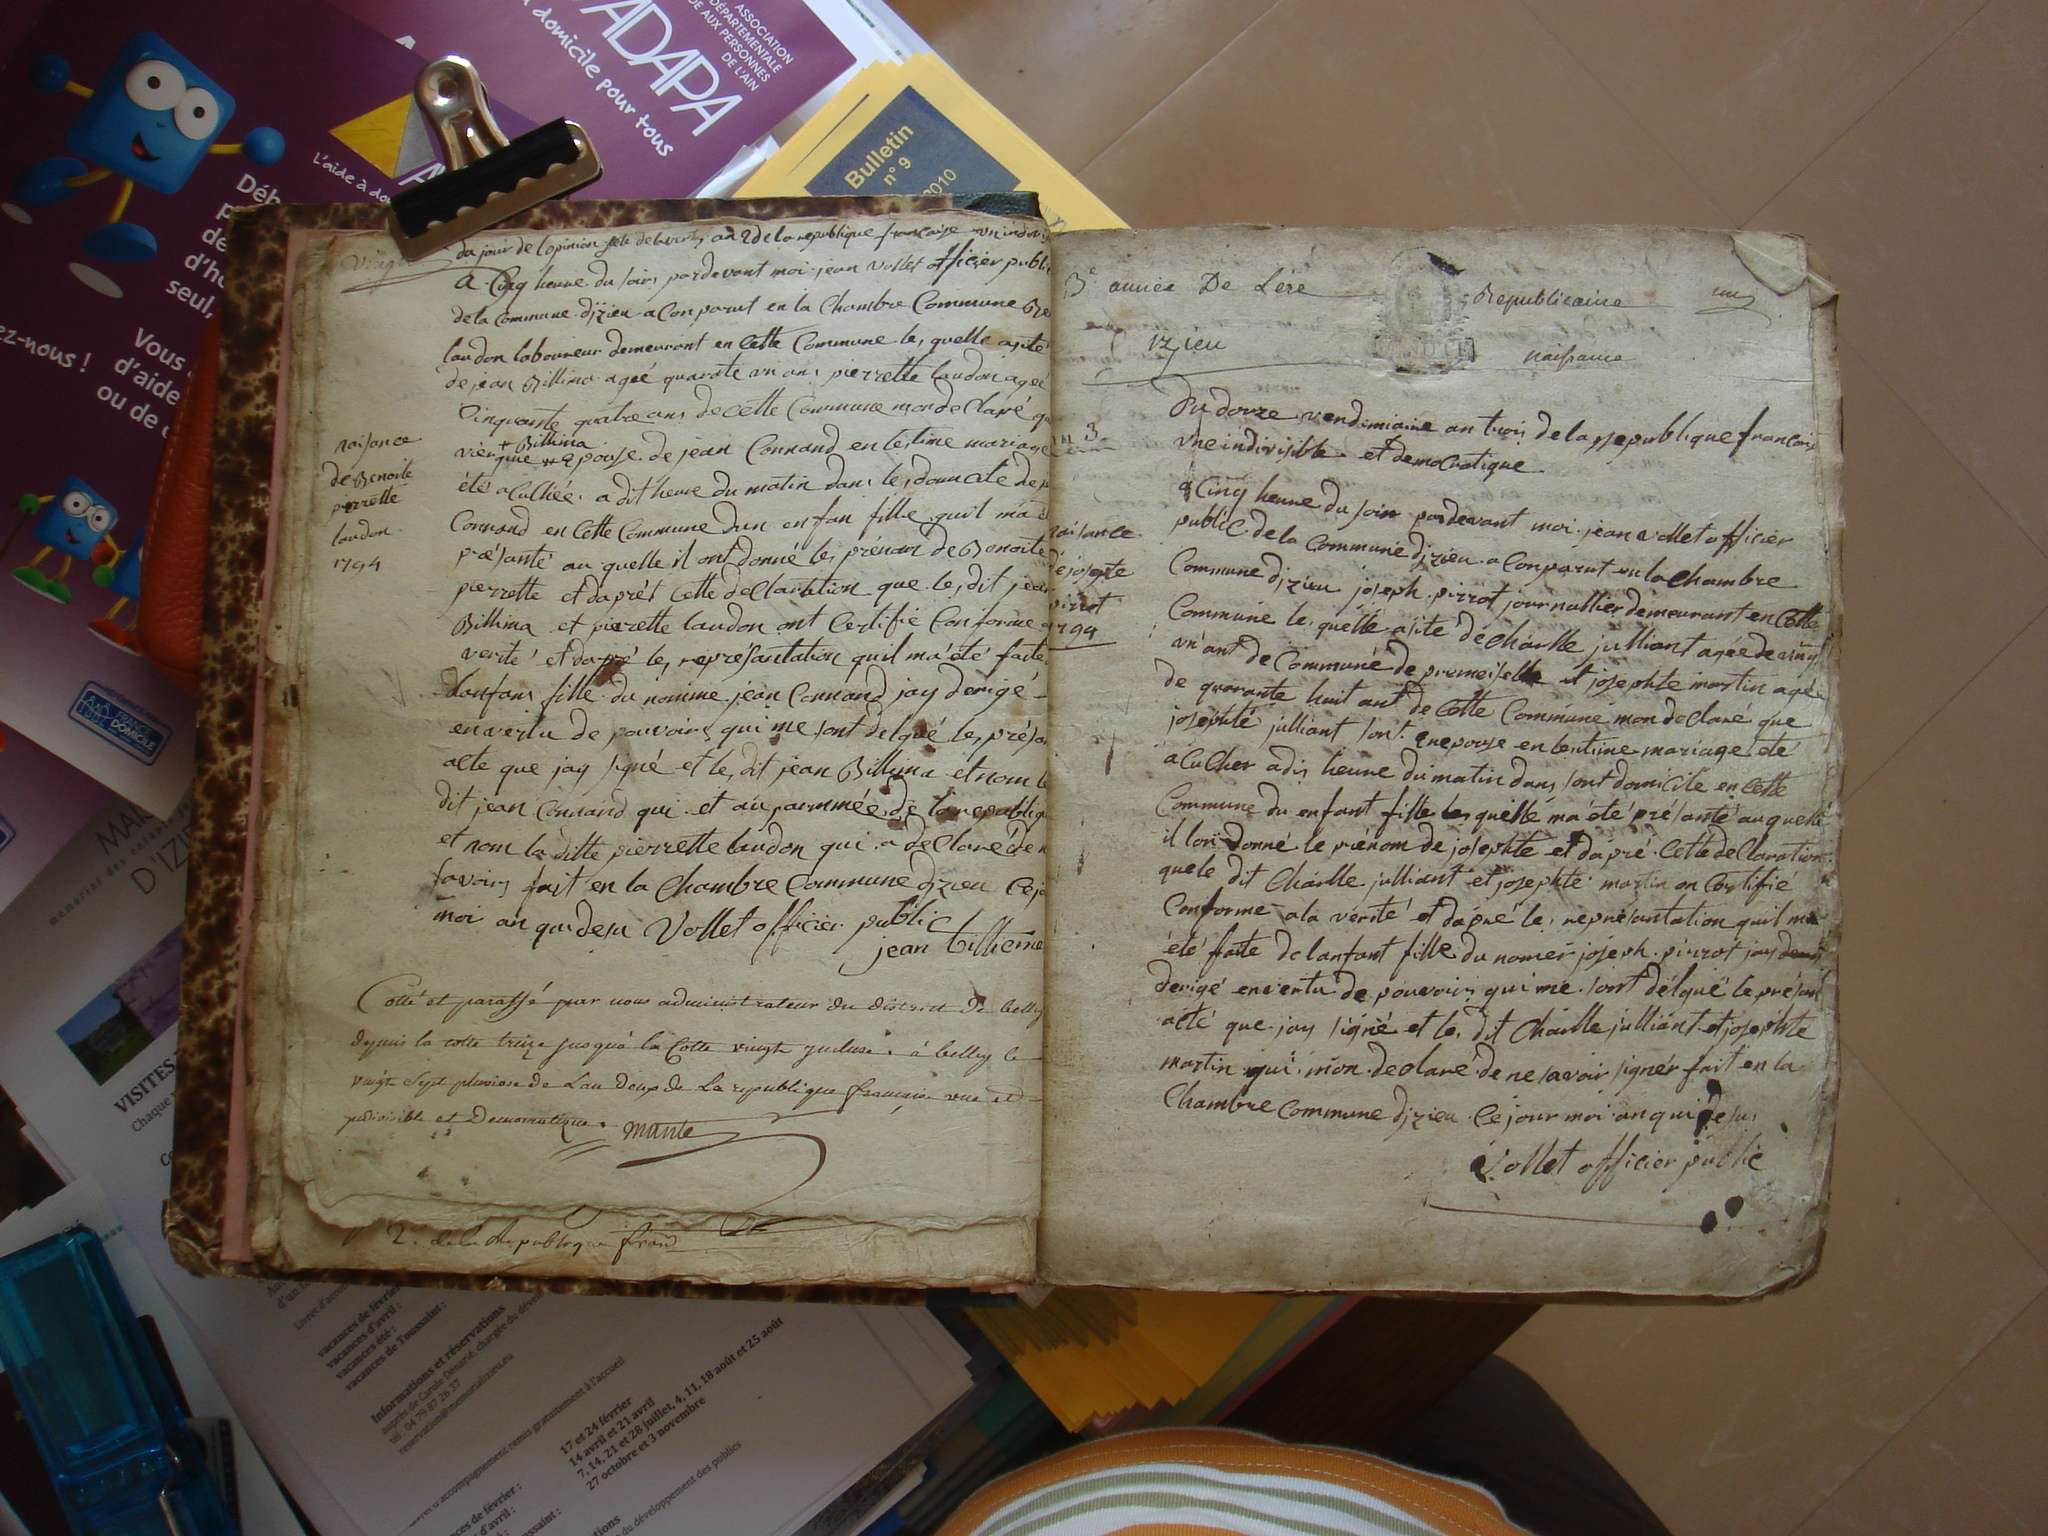 ADAPA
ASSOCIATION
DÉPARTEMENTALE
D'AIDE AUX PERSONNES
DE L'AIN
domicile pour tous
L'aide à do
Bulletin
n° 9
2010
Déb
d'h
seul,
ez-nous !
Vous
d'aide
ou de
FRANCE
DOMICILE
Vingt
du jour de lopinion fete de vertu, an 2 de la republique francaise un indivi
a Cinq heure du soir, pardevant moi jean vollet officier publi
de la Commune dizieu a Conparut en la Chambre Commune
laudon laboureur demeurant en Cette Commune le, quelle asité
de jean Billima ageé quarate un ans pierrette laudon ageé
Cinquante quatre ans de cette Commune mon de Claré q
+ Billima
vierginne epouse de jean Connand en lestime mariage
été acullié a dit heure du matin dans le, domicile de
Connand en Cette Commune dun enfan fille quil ma
présanté au quelle il ont donné le, prénom de Benoite
pierrette et daprét Cette de Claration que le, dit jean
Billima et pierrette laudon ont Certifié Conforme a
verité et dapré le, représantation quil ma été faite
Lanfan, fille du nomme jean Connand jay derigé
en vertu de pouvoir, qui me sont delgué le, présan
acte que jay signé et le, dit jean Billima et nom le
dit jean Connand qui et au parmmée de la republiqu
et nom la ditte pierrette laudon qui a declaré de
savoir, fait en la Chambre Commune dizieu Cejo
moi an qui desu Vollet officier public
jean billieme
naisance
de Benoite
pierrette
laudon
1794
Cotté et paraffé par nous administrateur du district de belley
depuis la cotte treize jusqua la Cotte vingt incluse. à belley le
vingt sept pluviose de Lan deux de La republique francaise une et
indivisible et Democratique. Mante
2e de la Republique franc
3e année De Lére
Republicaine
un
izieu
naissance
an 3
Du douze vendimiaire an trois de la republique francais
vne indivisible et democratique
a Cinq heure du soir pardevant moi jean vollet officier
public de la Commune dizieu a Conparut en la Chambre
Commune dizieu joseph pirrot journallier demeurant en Cette
Commune le, quelle asité de Charlle julliant agée de vingt
vn ant de Communé de premeiselle et josephte martin agé
de quarante huit ant de Cette Commune mon de Claré que
josephté julliant sont enepouse en lestime mariage été
a Cu Cher a dis heure du matin dans sont domicile en Cette
Commune du enfant fille les quelle ma été présanté au quelle
il lon donné le prénom de josephte et dapré Cette de Claration
que le dit Charlle julliant et josephte martin on Certifié
Conforme a la vérité et dapré le, représantation quil ma
été faite de lanfant fille du nomer joseph pirrot jay
derigé en vertu de pouvoir, qui me sont délgué le présant
acté que jay signé et le, dit Charlle julliant et josephte
martin qui mon de claré de ne savoir signér fait en la
Chambre Commune dizieu Ce jour moi an qui desu,
Vollet officier public
naisance
de josepte
pirrot
1794
D'IZI
VISITES
Chaque
vacances de février
vacances d'avril :
vacances été :
vacances de Toussaint :
Informations et réservations
auprès de Carole Dématié, chargée du déve
tél. 04 79 87 26 37
accompagnement remis gratuitement à l'accueil
17 et 24 février
14 avril et 21 avril
7, 14, 21 et 28 juillet, 4, 11, 18 août et 25 août
27 octobre et 3 novembre
du développement des publics